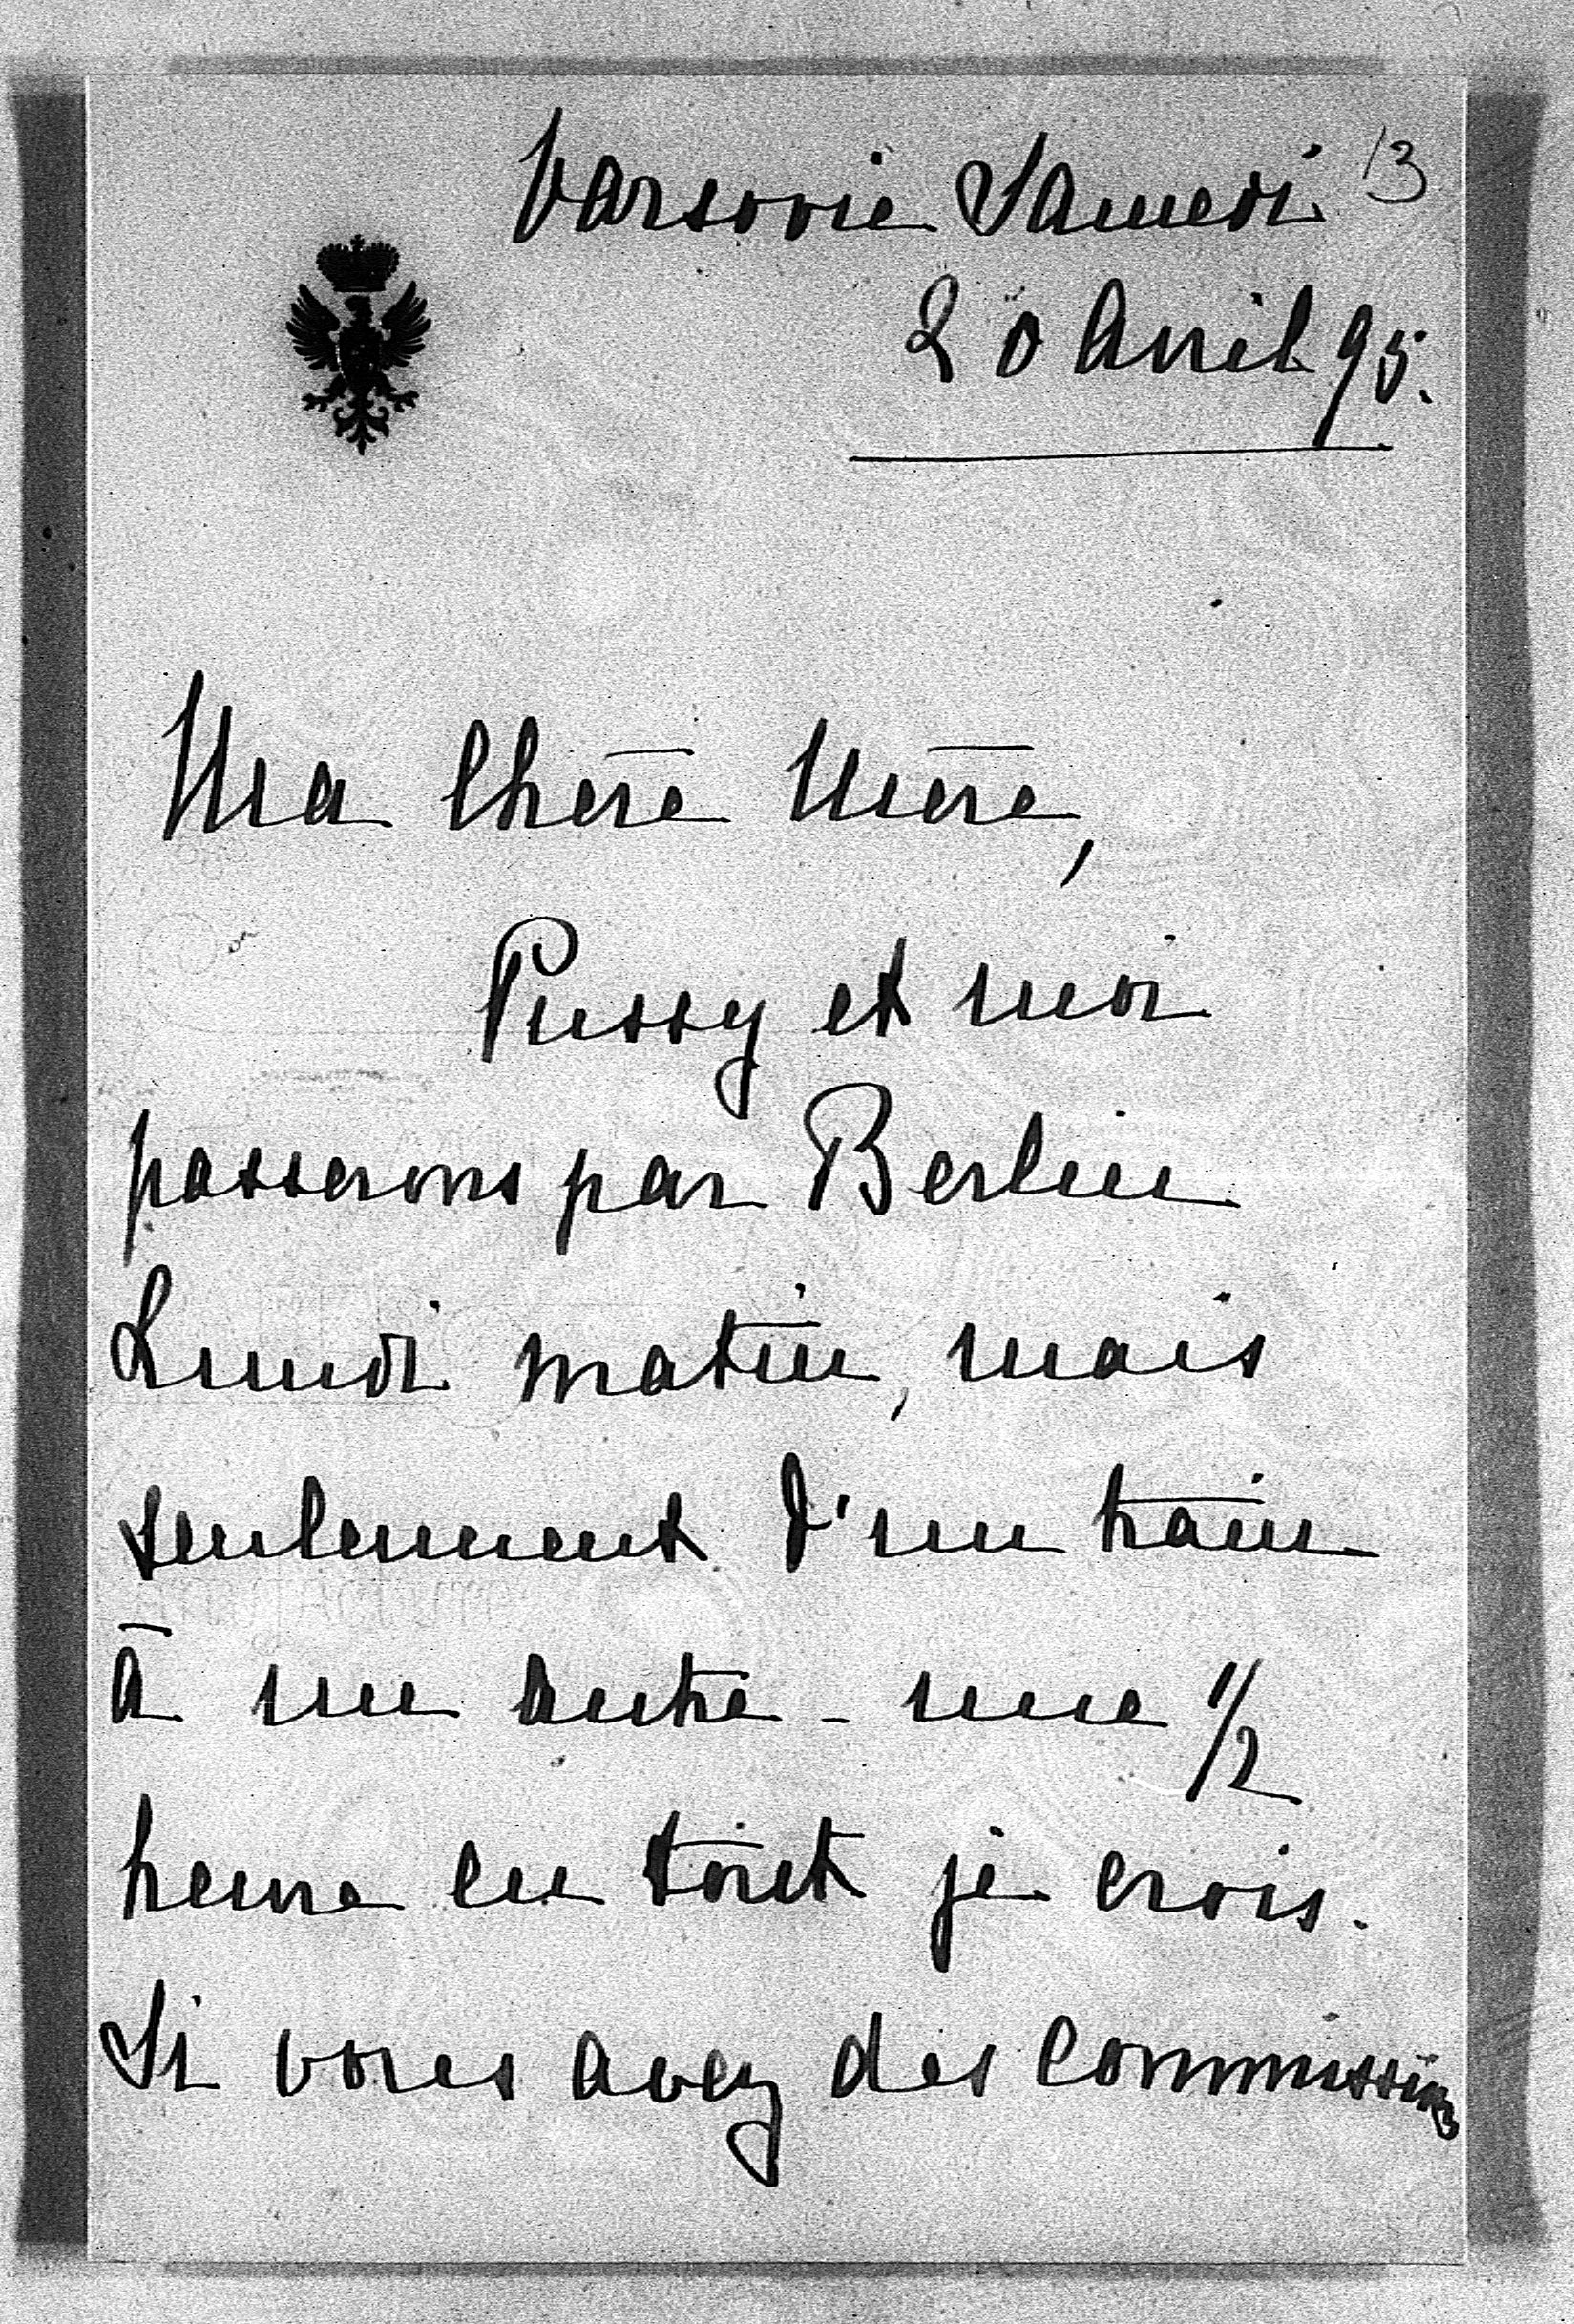 Varsovie Samedi 13
20 Avril 95.
Ma Chère Mère,
Pussy et moi
passerons par Berlin
Lundi matin, mais
seulement d'un train
à un autre - une 1/2
heure en tout je crois.
Si vous avez des commissions